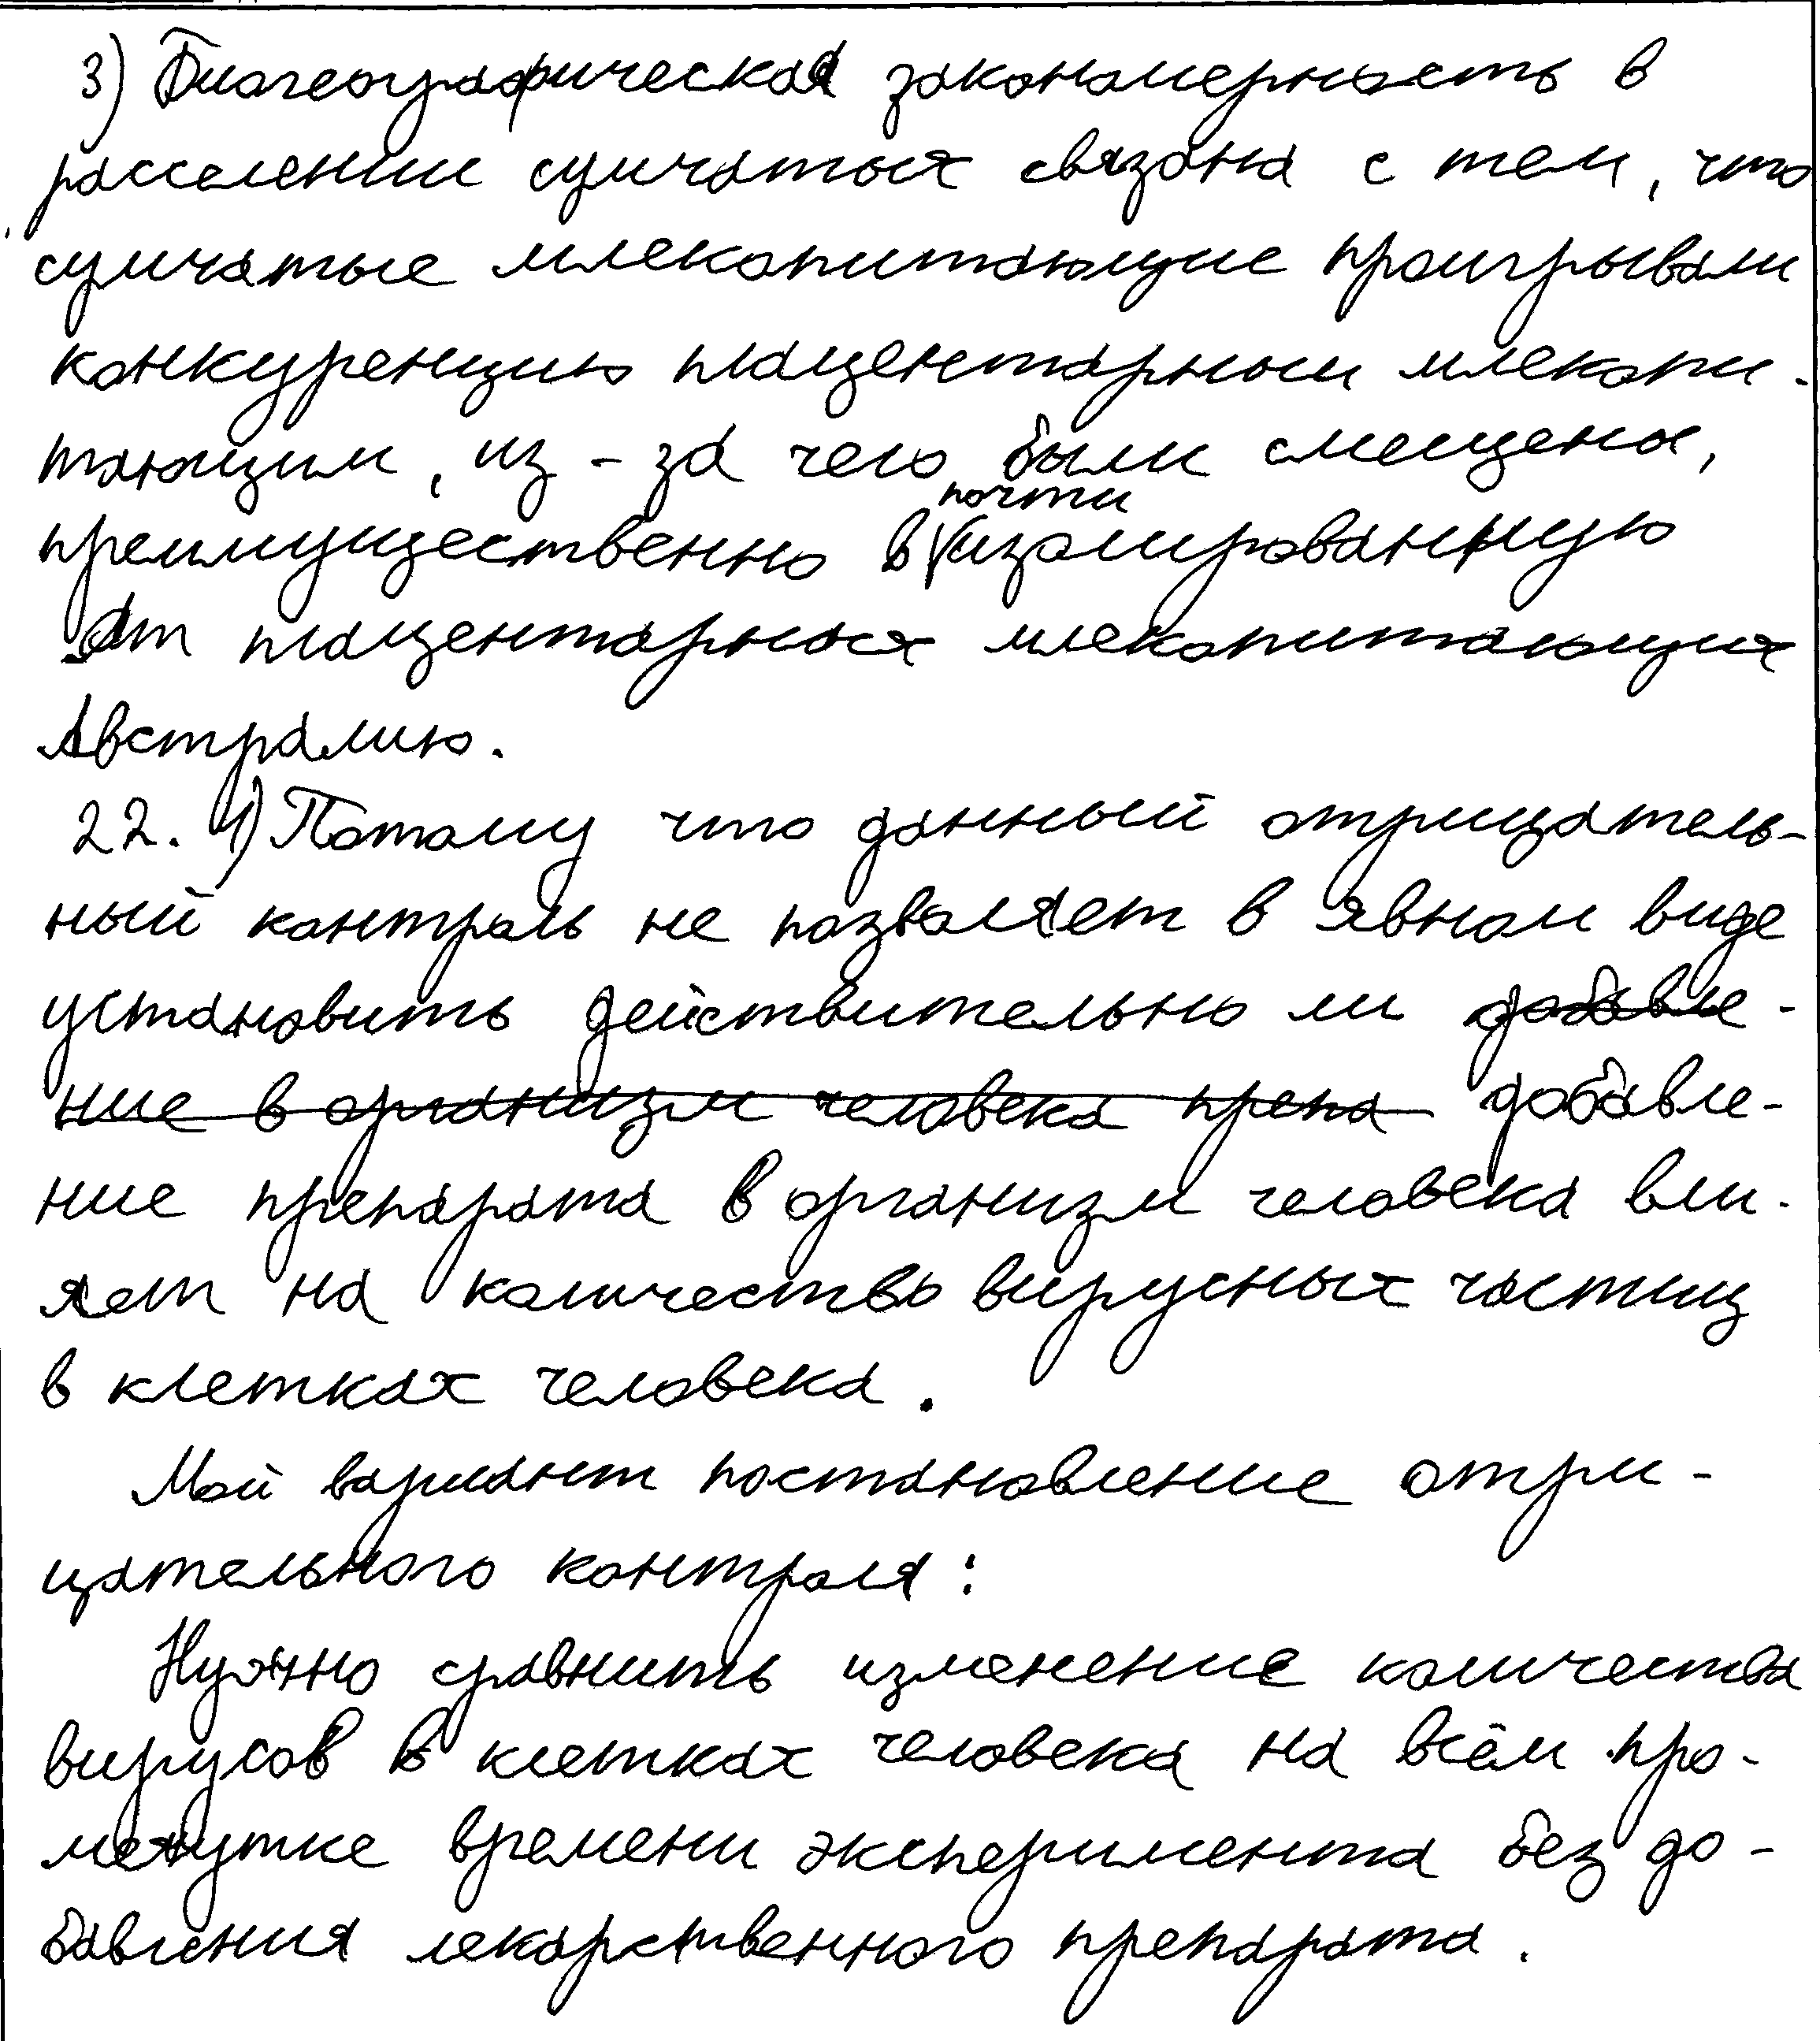 3) Биогеографическая закономерность в
расселении сумчатых связана с тем, что
сумчатые млекопитающие проигрывали
конкуренцию плацентарным млекопи-
тающим, из-за чего были смещены,
преимущественно в почти изолированную
от плацентарных млекопитающих
Австралию.
22. 1) Потому что данный отрицатель-
ный контроль не позволяет в явном виде
установить действительно ли добавле-
ние в организм человека препа добавле-
ние препарата в организм человека вли-
яет на количество вирусных частиц
в клетках человека.
Мой вариант постановление отри-
цательного контроля:
Нужно сравнить изменение количества
вирусов в клетках человека на всём про-
межутке времени эксперимента без до-
бавления лекарственного препарата.